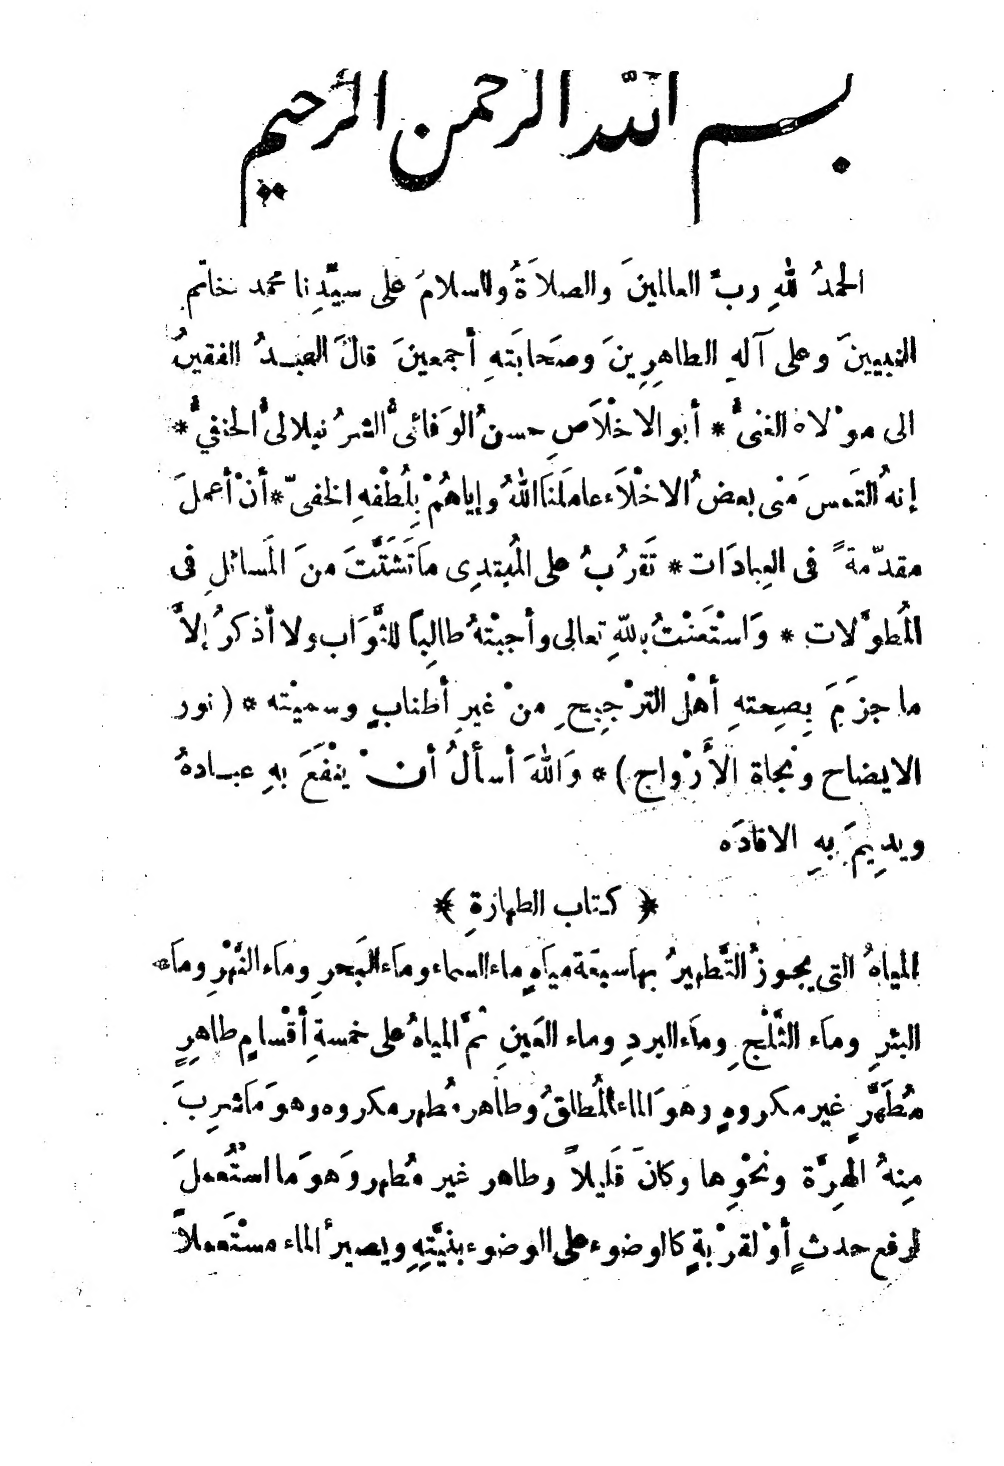 بسم الله الرحمن الرحيم
الحمدُ للهِ ربِّ العالمينَ والصلاَةُ والسلامَ على سيِّدِنا محمد خاتم
النبيينَ وعلى آلهِ الطاهرِينَ وصَحابَتهِ أجمعينَ قالَ العبدُ الفقيرُ
الى موْلاهُ الغنىُّ * أبو الاخْلاَصِ حسنُ الوَفائىُّ الشرُ نبلالىُّ الحنفيُّ *
إنهُ التَمسَ مِنى بعضُ الاخلْاَء عامَلنَا اللهُ وإياهُمْ بِلُطْفهِ الخفىّ * أنْ أعملَ
مقدّمةً فى العِبادَات * تَقرُبُ على المُبتدِى مَا تَشَتَّتَ منَ المَسائلِ فى
المُطوَّلات * وَاسْتَعَنْتُ باللهِ تعالى وأجبْتهُ طالِباً للثَّوَاب ولا أذكرُ إلاَّ
ما جزَمَ بِصِحتهِ أهْل الترْجِيحِ منْ غيرِ أطنابٍ وسميْته * ( نور
الايضاح ونجاة الأَرْواح ) * وَاللهَ أسألُ أنْ ينْفَعَ بهِ عبادهُ
ويدِيمَ بهِ الافادَه
﴿ كتاب الطهارةِ ﴾
المياهُ التى يجوزُ التَّطهيرُ بها سبعَة مياَهٍ ماء السماء وماَء البَحرِ وماَء النَّهْرِ وماَء
البئرِ وماَء الثَّلْجِ وماَء البردِ وماء العَينِ ثمَّ المياهُ على خمسةِ أقْسامٍ طاهرٍ
مُطَهِّرٍ غير مكروهٍ وهوَ الماء المُطلقُ وطاهر مُطهر مكروه وهوَ مَا شرِبَ
مِنهُ الهِرَّة ونحْوِها وكانَ قَليلاً وطاهر غير مُطهر وَهوَ مَا استُعملَ
لرفع حدثٍ أوْ لقرْبةٍ كالوضوء على الوضوء بنيَّتهِ ويصير الماء مسْتَعملاً